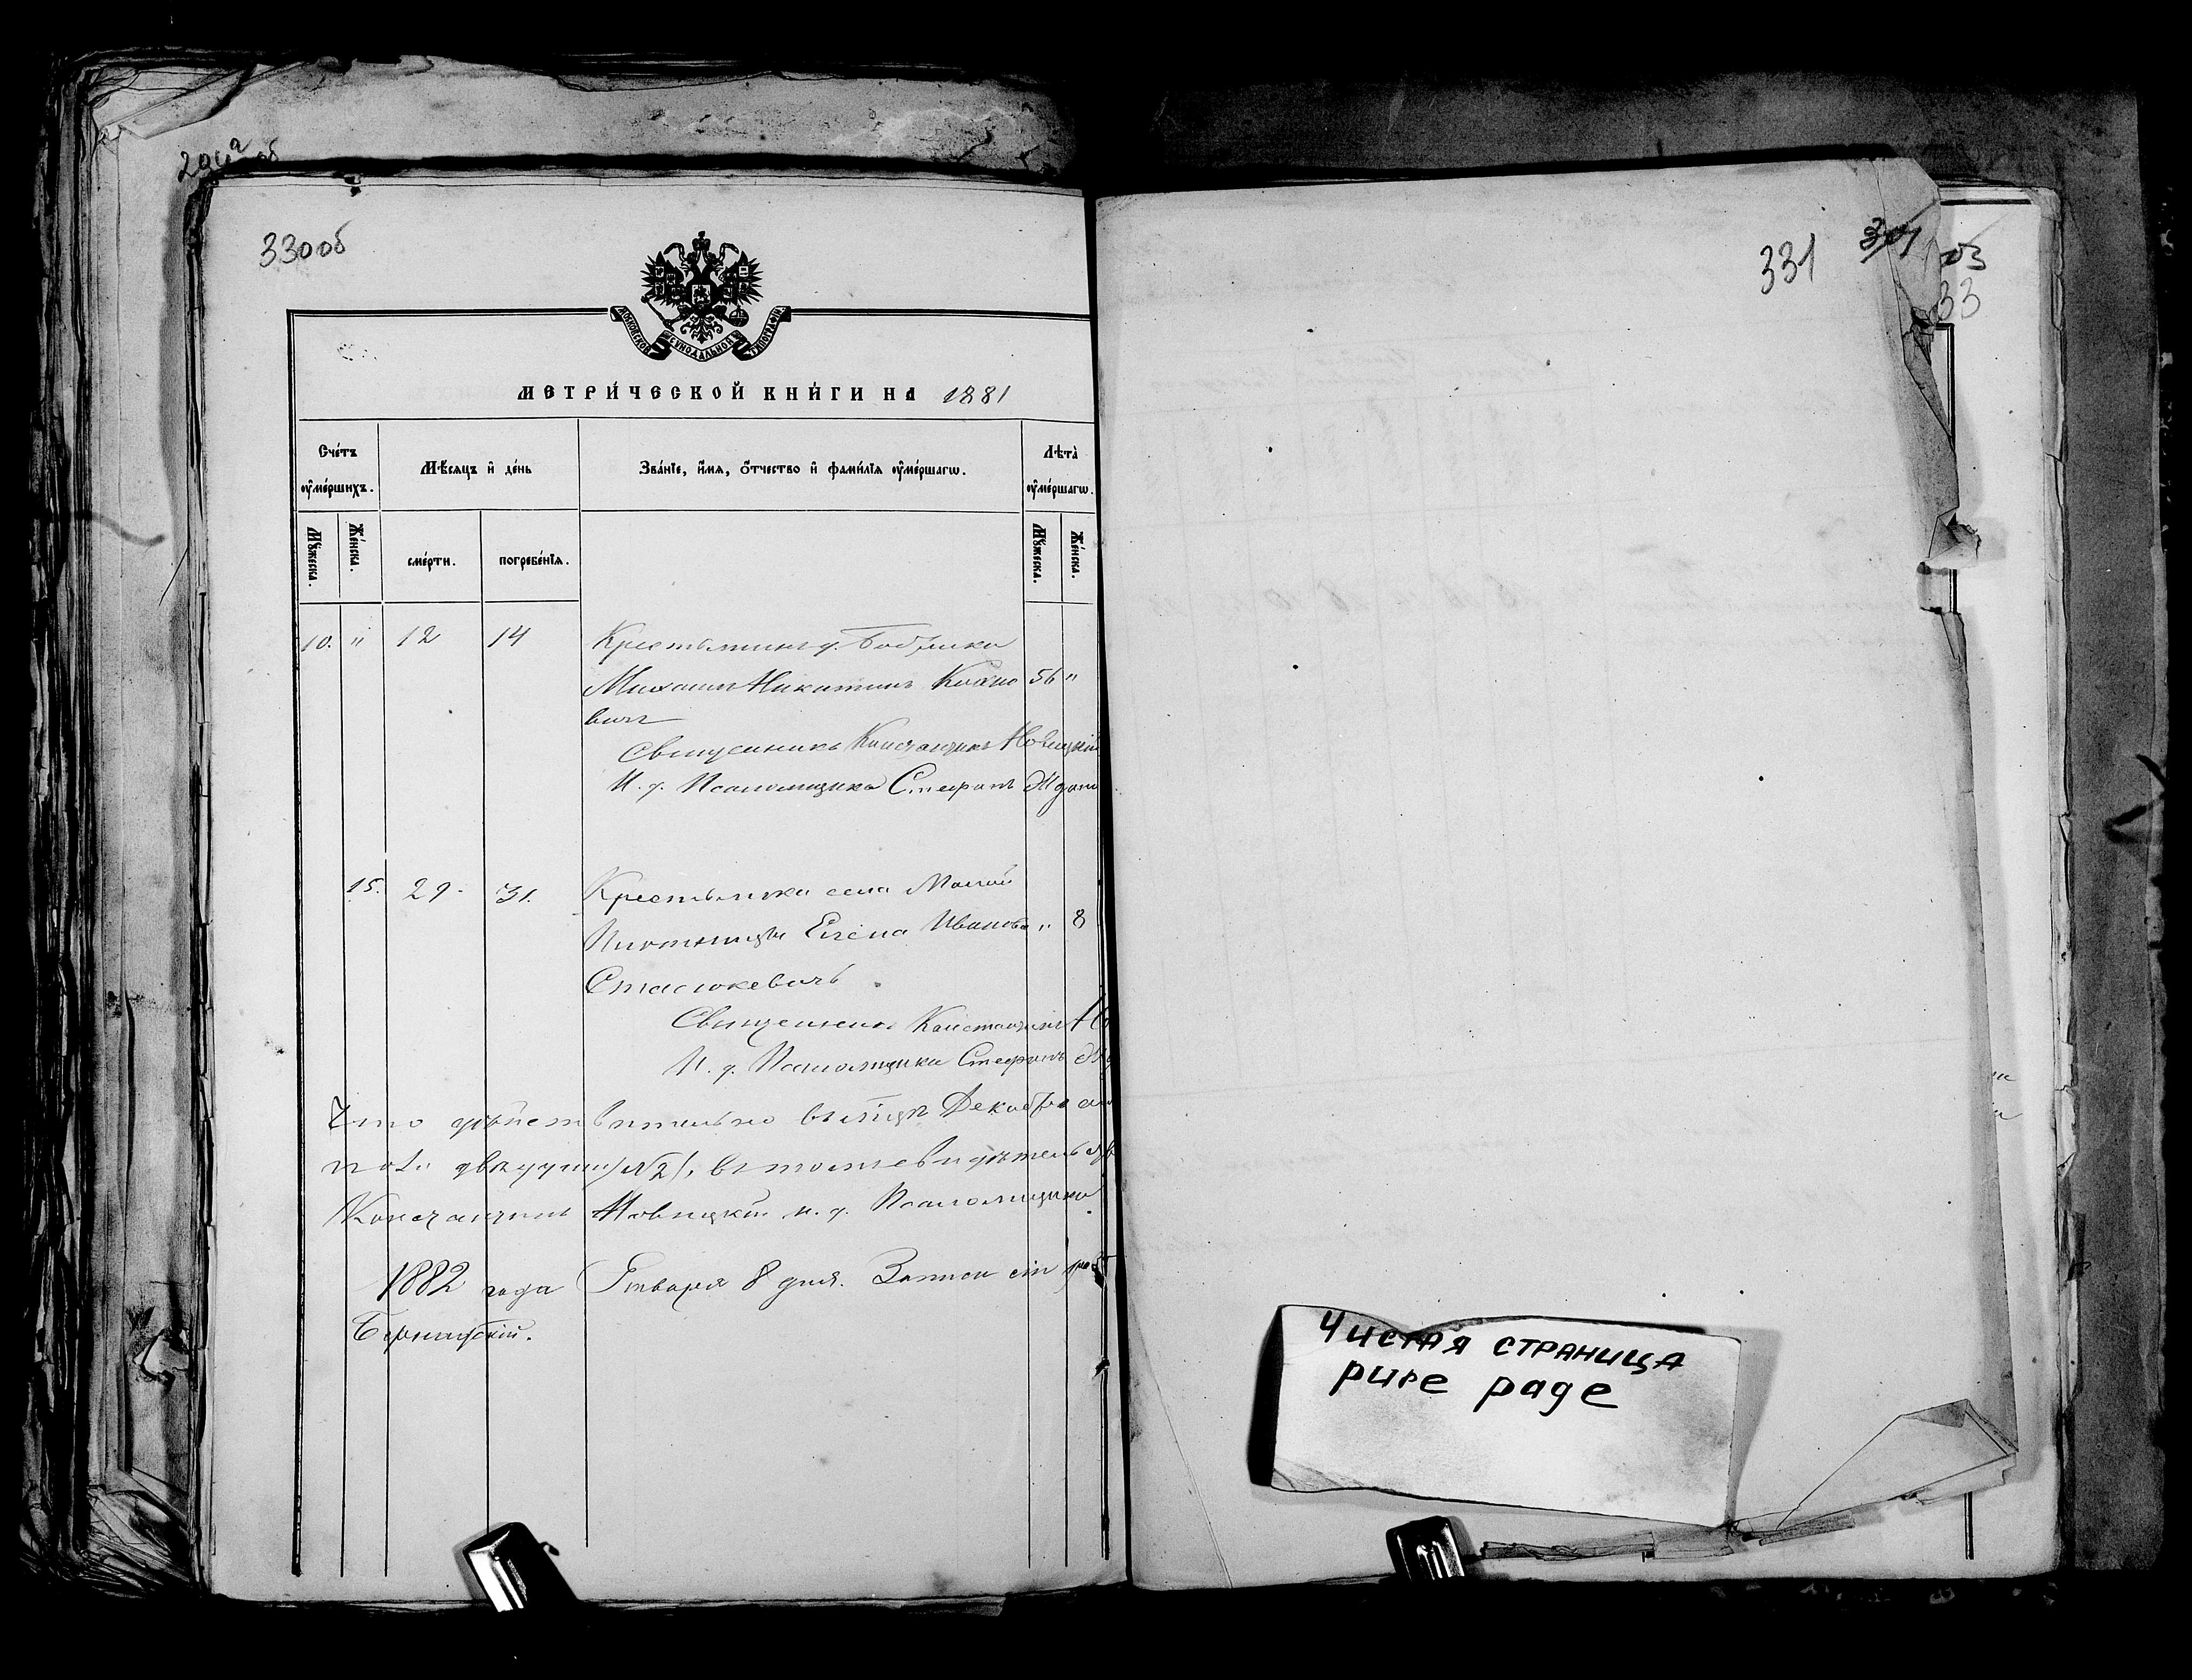 330об
МОСКОВСКОЙ СѴНОДАЛЬНОЙ ТИПОГРАФІИ
МЕТРИ́ЧЕСКОЙ КНИ́ГИ НА 1881
Сче́тъ ᲂу҆ме́ршихъ.
Мѣ́сяцъ и҆ де́нь
Зва́нїе, и҆́мя, ѻ҆́тчество и҆ фами́лїѧ ᲂу҆ме́ршагѡ.
Лѣ́та ᲂу҆ме́ршагѡ.
Мꙋ́жеска.
Же́нска.
сме́рти.
погребе́нїѧ.
Мꙋ́жеска.
Же́нска.
10. " 12 14 Крестьянинъ д. Бобрика
Михаилъ Никитинъ Кохно 56 "
вичъ
Священникъ Константинъ Новицкій
И. д. Псаломщика Стефанъ
15. 29. 31. Крестьянка села Малой
Плотницы Елена Иванова " 8
Стасюкевичъ
Священникъ Константинъ
И. д. Псаломщика Стефанъ
Что дѣйствительно въ мѣцѣ Декабрѣ
Константинъ Новицкій и. д. Псаломщика
1882 года Января 8 дня. Записи сіи
331
301
Чистая страница
pure page